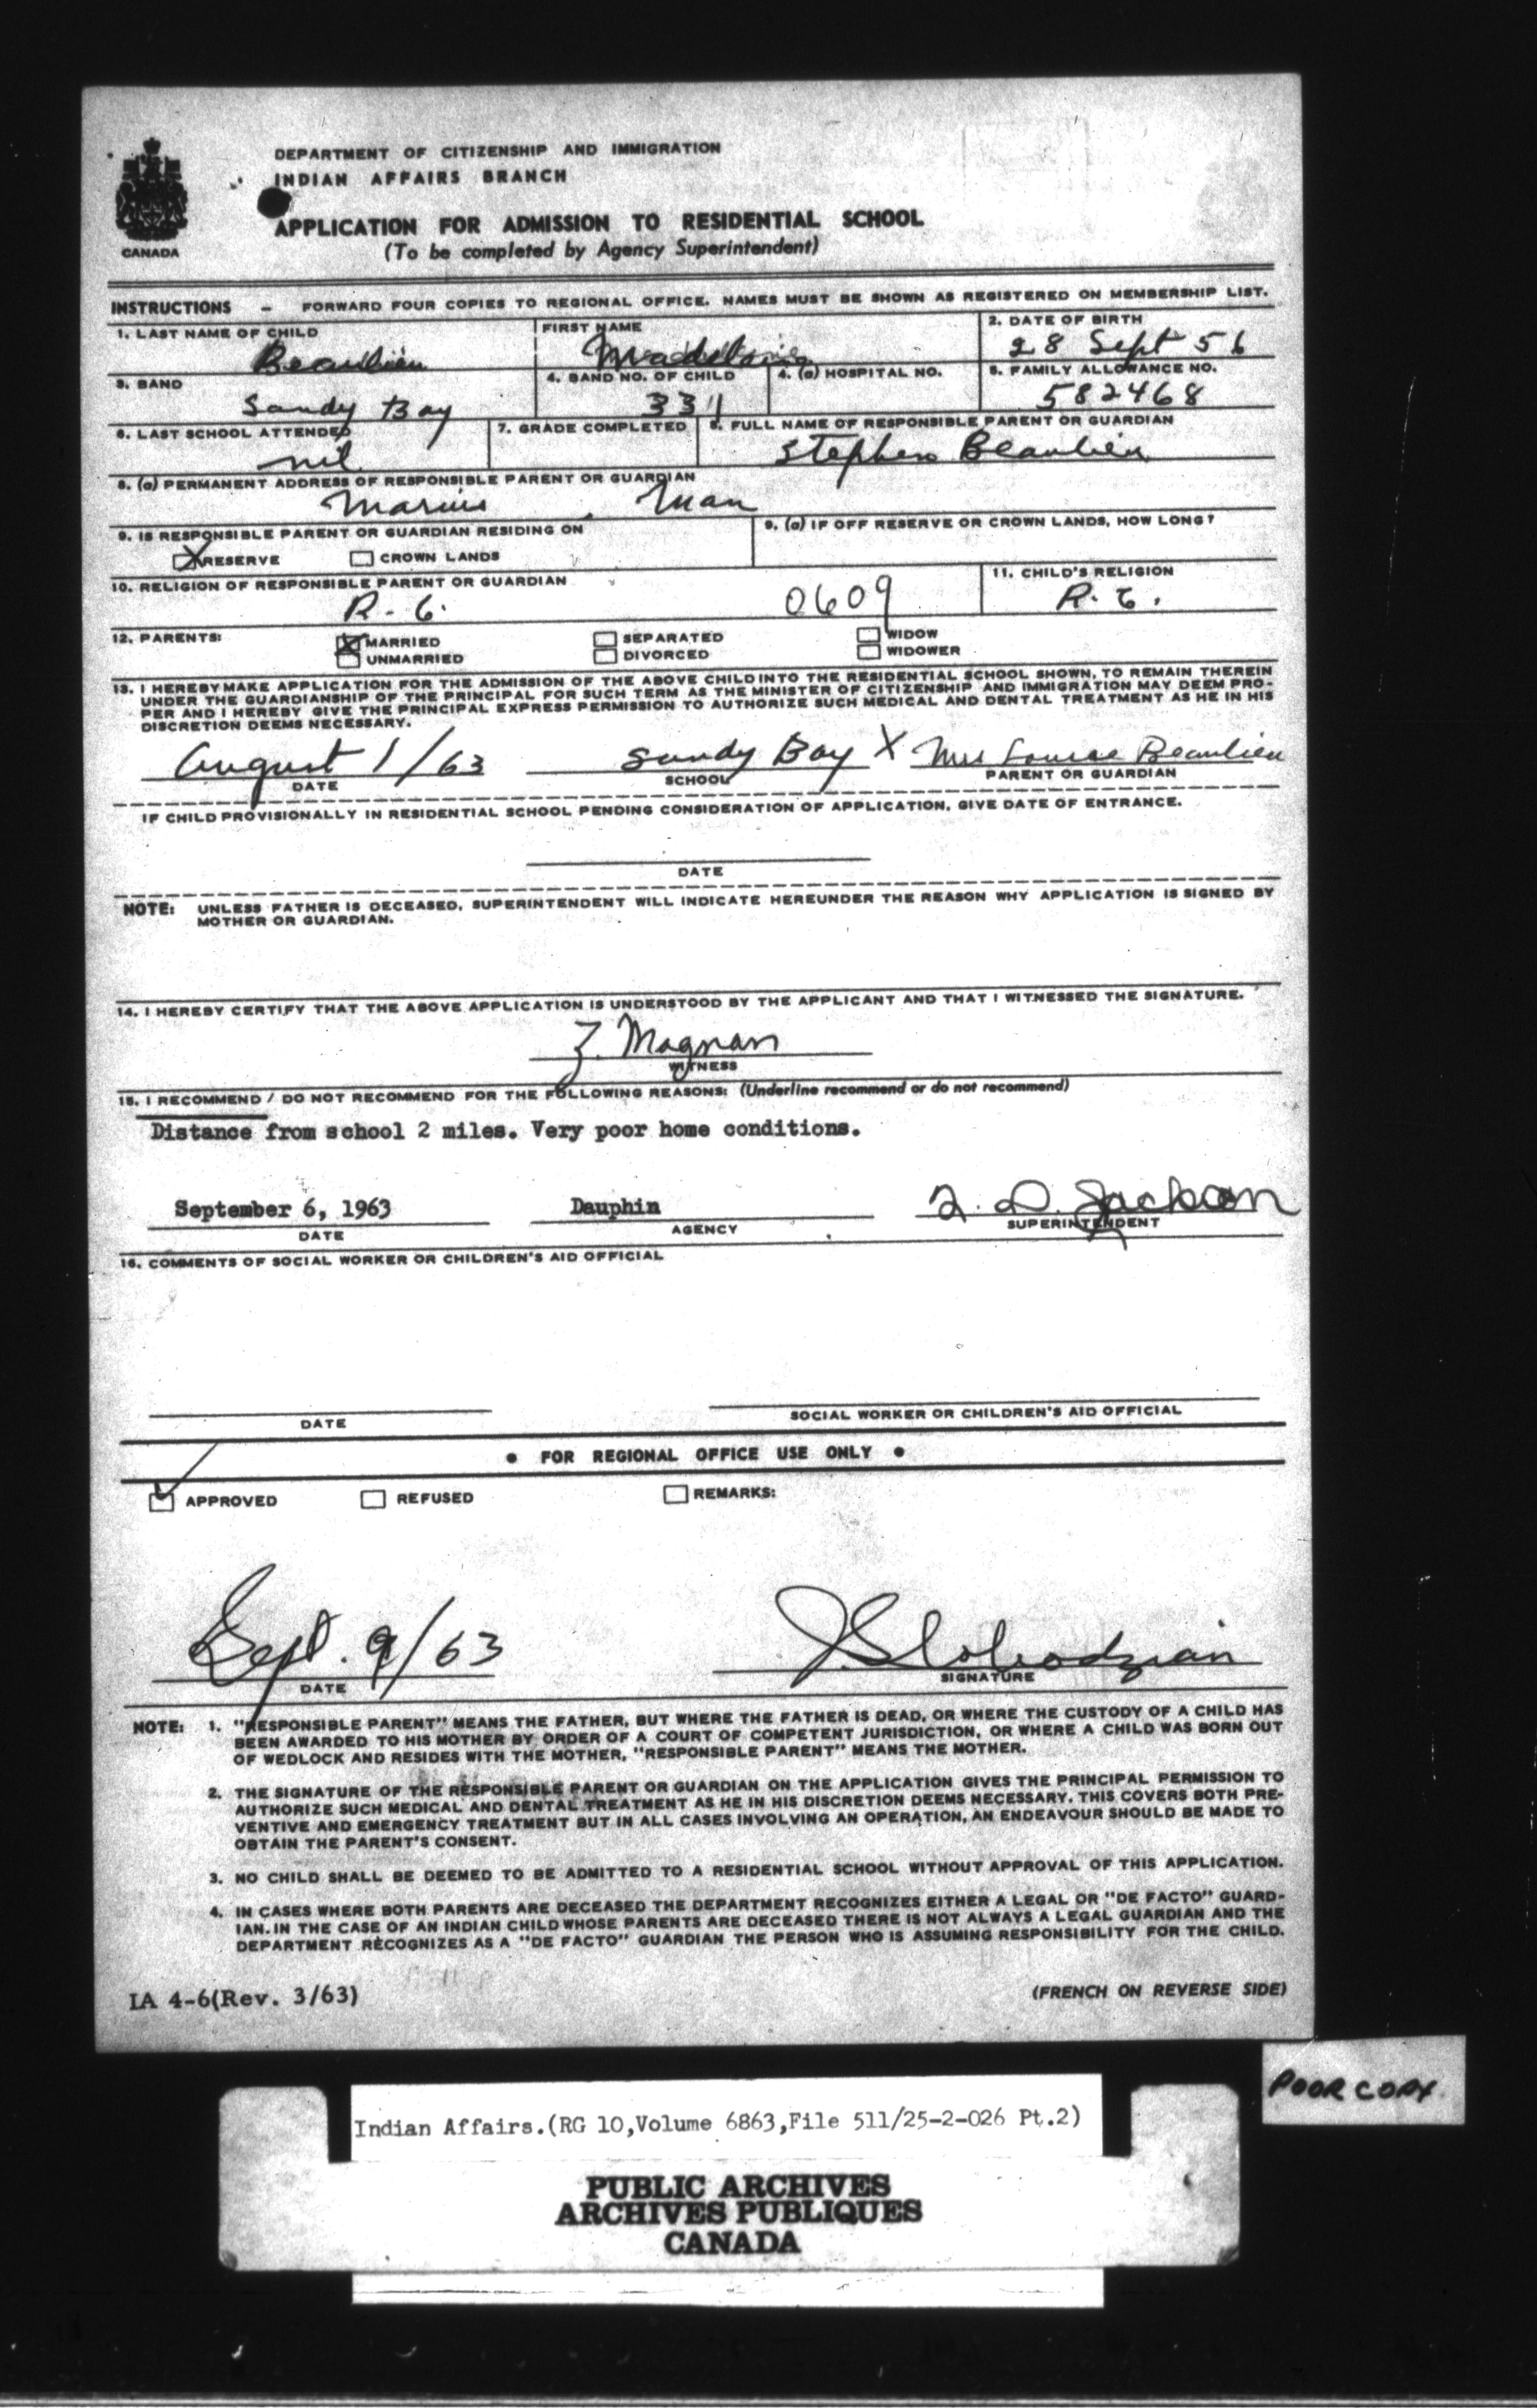 DEPARTMENT OF CITIZENSHIP AND IMMIGRATION
INDIAN AFFAIRS BRANCH
APPLICATION FOR ADMISSION TO RESIDENTIAL SCHOOL
(To be completed by Agency Superintendent)
CANADA
INSTRUCTIONS – FORWARD FOUR COPIES TO REGIONAL OFFICE. NAMES MUST BE SHOWN AS REGISTERED ON MEMBERSHIP LIST.
1. LAST NAME OF CHILD FIRST NAME 2. DATE OF BIRTH
Beaulieu 28 Sept 56
3. BAND 4. BAND NO. OF CHILD 4. (a) HOSPITAL NO. 5. FAMILY ALLOWANCE NO.
Sandy Bay 331 582468
6. LAST SCHOOL ATTENDED 7. GRADE COMPLETED 8. FULL NAME OF RESPONSIBLE PARENT OR GUARDIAN
nil Stephen Beaulieu
8. (a) PERMANENT ADDRESS OF RESPONSIBLE PARENT OR GUARDIAN
Marius, Man
9. IS RESPONSIBLE PARENT OR GUARDIAN RESIDING ON 9. (a) IF OFF RESERVE OR CROWN LANDS, HOW LONG?
X RESERVE CROWN LANDS
10. RELIGION OF RESPONSIBLE PARENT OR GUARDIAN 11. CHILD'S RELIGION
R.C. 0609 R.C.
12. PARENTS: X MARRIED SEPARATED WIDOW
UNMARRIED DIVORCED WIDOWER
13. I HEREBY MAKE APPLICATION FOR THE ADMISSION OF THE ABOVE CHILD INTO THE RESIDENTIAL SCHOOL SHOWN, TO REMAIN THEREIN
UNDER THE GUARDIANSHIP OF THE PRINCIPAL FOR SUCH TERM AS THE MINISTER OF CITIZENSHIP AND IMMIGRATION MAY DEEM PRO-
PER AND I HEREBY GIVE THE PRINCIPAL EXPRESS PERMISSION TO AUTHORIZE SUCH MEDICAL AND DENTAL TREATMENT AS HE IN HIS
DISCRETION DEEMS NECESSARY.
August 1/63 Sandy Bay X Mrs Louise Beaulieu
DATE SCHOOL PARENT OR GUARDIAN
IF CHILD PROVISIONALLY IN RESIDENTIAL SCHOOL PENDING CONSIDERATION OF APPLICATION, GIVE DATE OF ENTRANCE.
DATE
NOTE: UNLESS FATHER IS DECEASED, SUPERINTENDENT WILL INDICATE HEREUNDER THE REASON WHY APPLICATION IS SIGNED BY
MOTHER OR GUARDIAN.
14. I HEREBY CERTIFY THAT THE ABOVE APPLICATION IS UNDERSTOOD BY THE APPLICANT AND THAT I WITNESSED THE SIGNATURE.
Z. Magnan
WITNESS
15. I RECOMMEND / DO NOT RECOMMEND FOR THE FOLLOWING REASONS: (Underline recommend or do not recommend)
Distance from school 2 miles. Very poor home conditions.
September 6, 1963 Dauphin Jackson
DATE AGENCY SUPERINTENDENT
16. COMMENTS OF SOCIAL WORKER OR CHILDREN'S AID OFFICIAL
DATE SOCIAL WORKER OR CHILDREN'S AID OFFICIAL
• FOR REGIONAL OFFICE USE ONLY •
✓ APPROVED REFUSED REMARKS:
Sept. 9/63 J. Slobodzian
DATE SIGNATURE
NOTE: 1. "RESPONSIBLE PARENT" MEANS THE FATHER, BUT WHERE THE FATHER IS DEAD, OR WHERE THE CUSTODY OF A CHILD HAS
BEEN AWARDED TO HIS MOTHER BY ORDER OF A COURT OF COMPETENT JURISDICTION, OR WHERE A CHILD WAS BORN OUT
OF WEDLOCK AND RESIDES WITH THE MOTHER, "RESPONSIBLE PARENT" MEANS THE MOTHER.
2. THE SIGNATURE OF THE RESPONSIBLE PARENT OR GUARDIAN ON THE APPLICATION GIVES THE PRINCIPAL PERMISSION TO
AUTHORIZE SUCH MEDICAL AND DENTAL TREATMENT AS HE IN HIS DISCRETION DEEMS NECESSARY. THIS COVERS BOTH PRE-
VENTIVE AND EMERGENCY TREATMENT BUT IN ALL CASES INVOLVING AN OPERATION, AN ENDEAVOUR SHOULD BE MADE TO
OBTAIN THE PARENT'S CONSENT.
3. NO CHILD SHALL BE DEEMED TO BE ADMITTED TO A RESIDENTIAL SCHOOL WITHOUT APPROVAL OF THIS APPLICATION.
4. IN CASES WHERE BOTH PARENTS ARE DECEASED THE DEPARTMENT RECOGNIZES EITHER A LEGAL OR "DE FACTO" GUARD-
IAN. IN THE CASE OF AN INDIAN CHILD WHOSE PARENTS ARE DECEASED THERE IS NOT ALWAYS A LEGAL GUARDIAN AND THE
DEPARTMENT RECOGNIZES AS A "DE FACTO" GUARDIAN THE PERSON WHO IS ASSUMING RESPONSIBILITY FOR THE CHILD.
IA 4-6(Rev. 3/63) (FRENCH ON REVERSE SIDE)
POOR COPY
Indian Affairs.(RG 10,Volume 6863,File 511/25-2-026 Pt.2)
PUBLIC ARCHIVES
ARCHIVES PUBLIQUES
CANADA